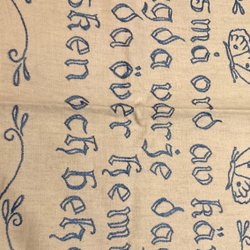 små ord av kär
agda varje
a över hem
sken och beh